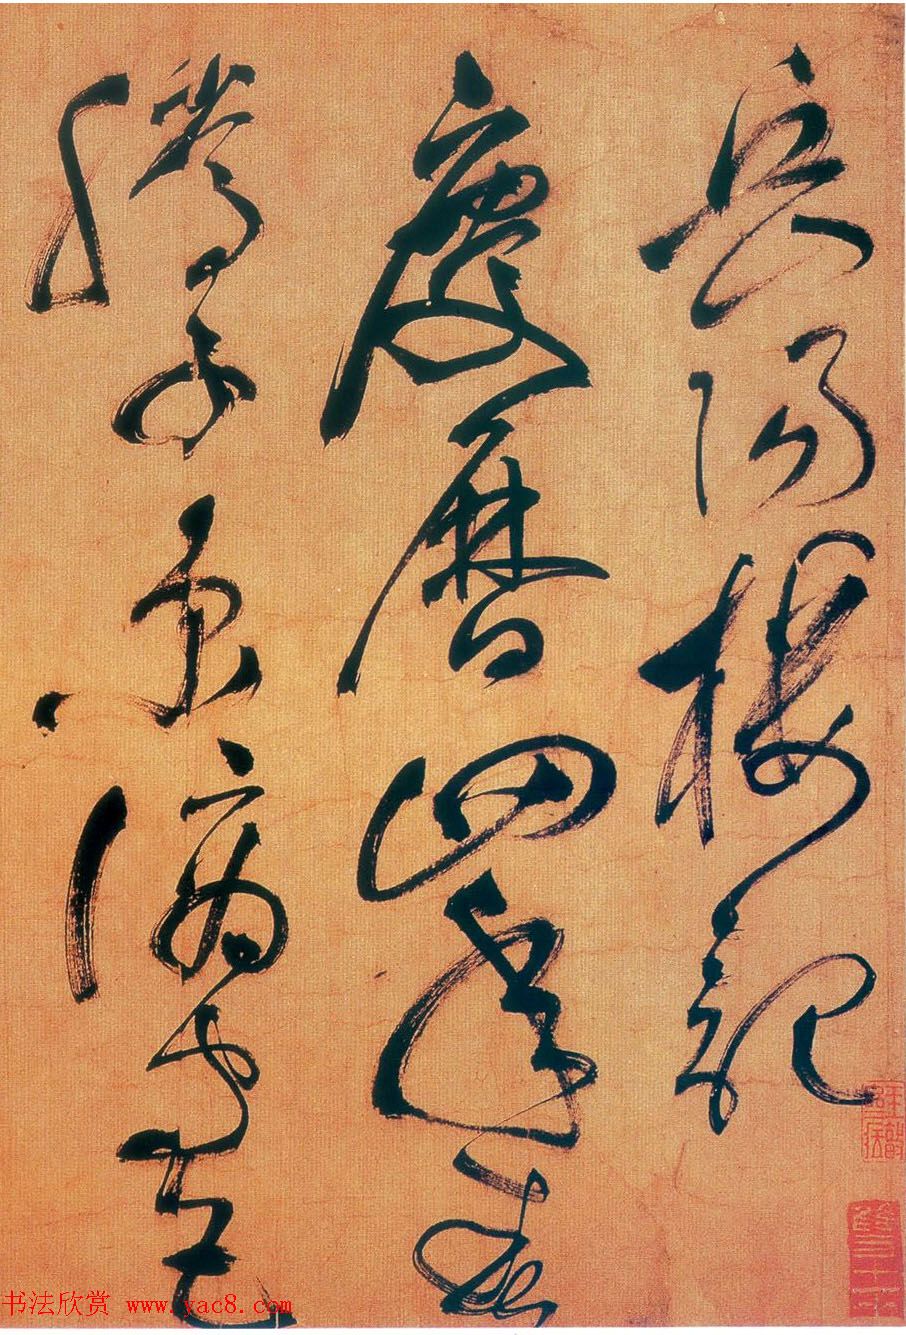 岳陽樓記
慶曆四年春
滕子京謫守巴
书法欣赏 www.yac8.com